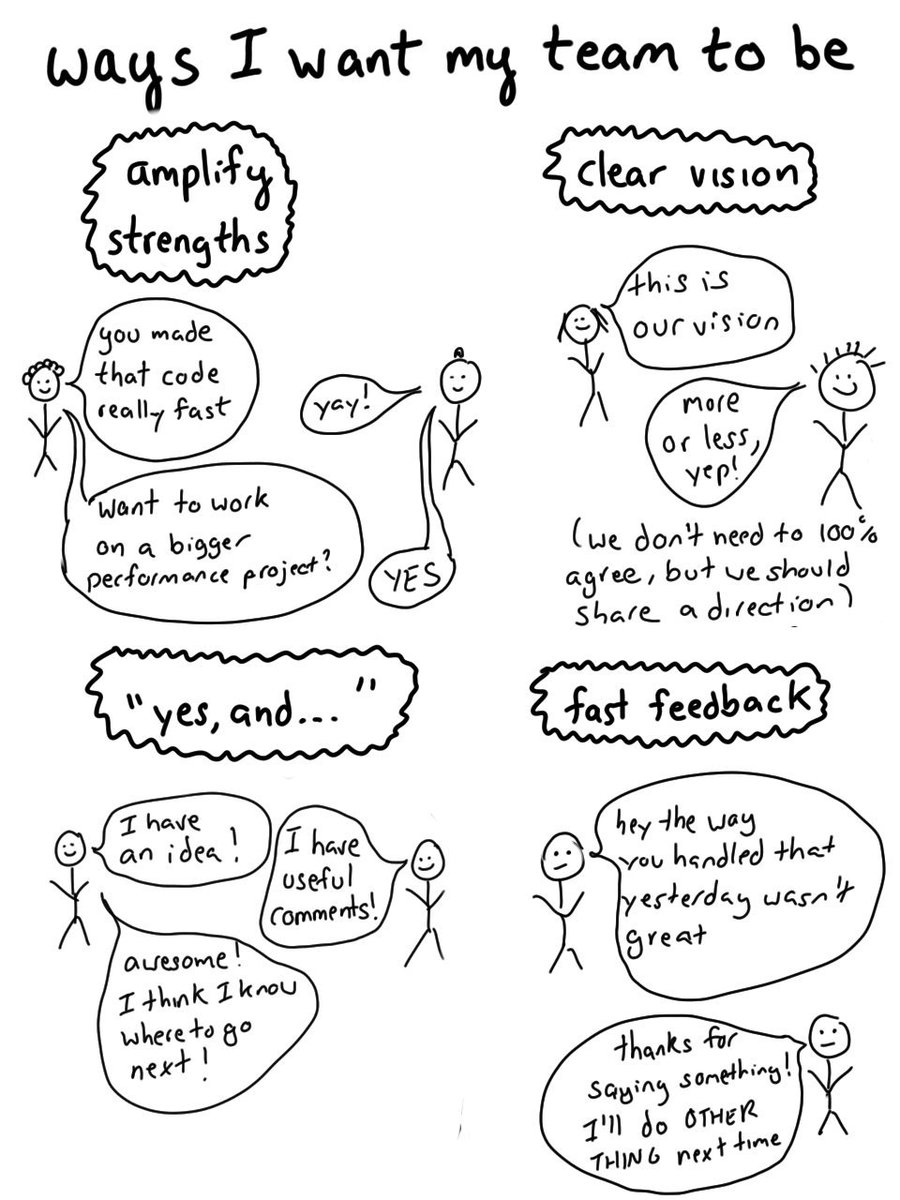 ways I want my team to be
amplify
strengths
you made
that code
really fast
yay!
want to work
on a bigger
performance project?
YES
clear vision
this is
our vision
more
or less,
yep!
(we don't need to 100%
agree, but we should
share a direction)
"yes, and... "
I have
an idea!
I have
useful
comments!
awesome!
I think I know
where to go
next!
fast feedback
hey the way
you handled that
yesterday wasn't
great
thanks for
saying something!
I'll do OTHER
THING next time